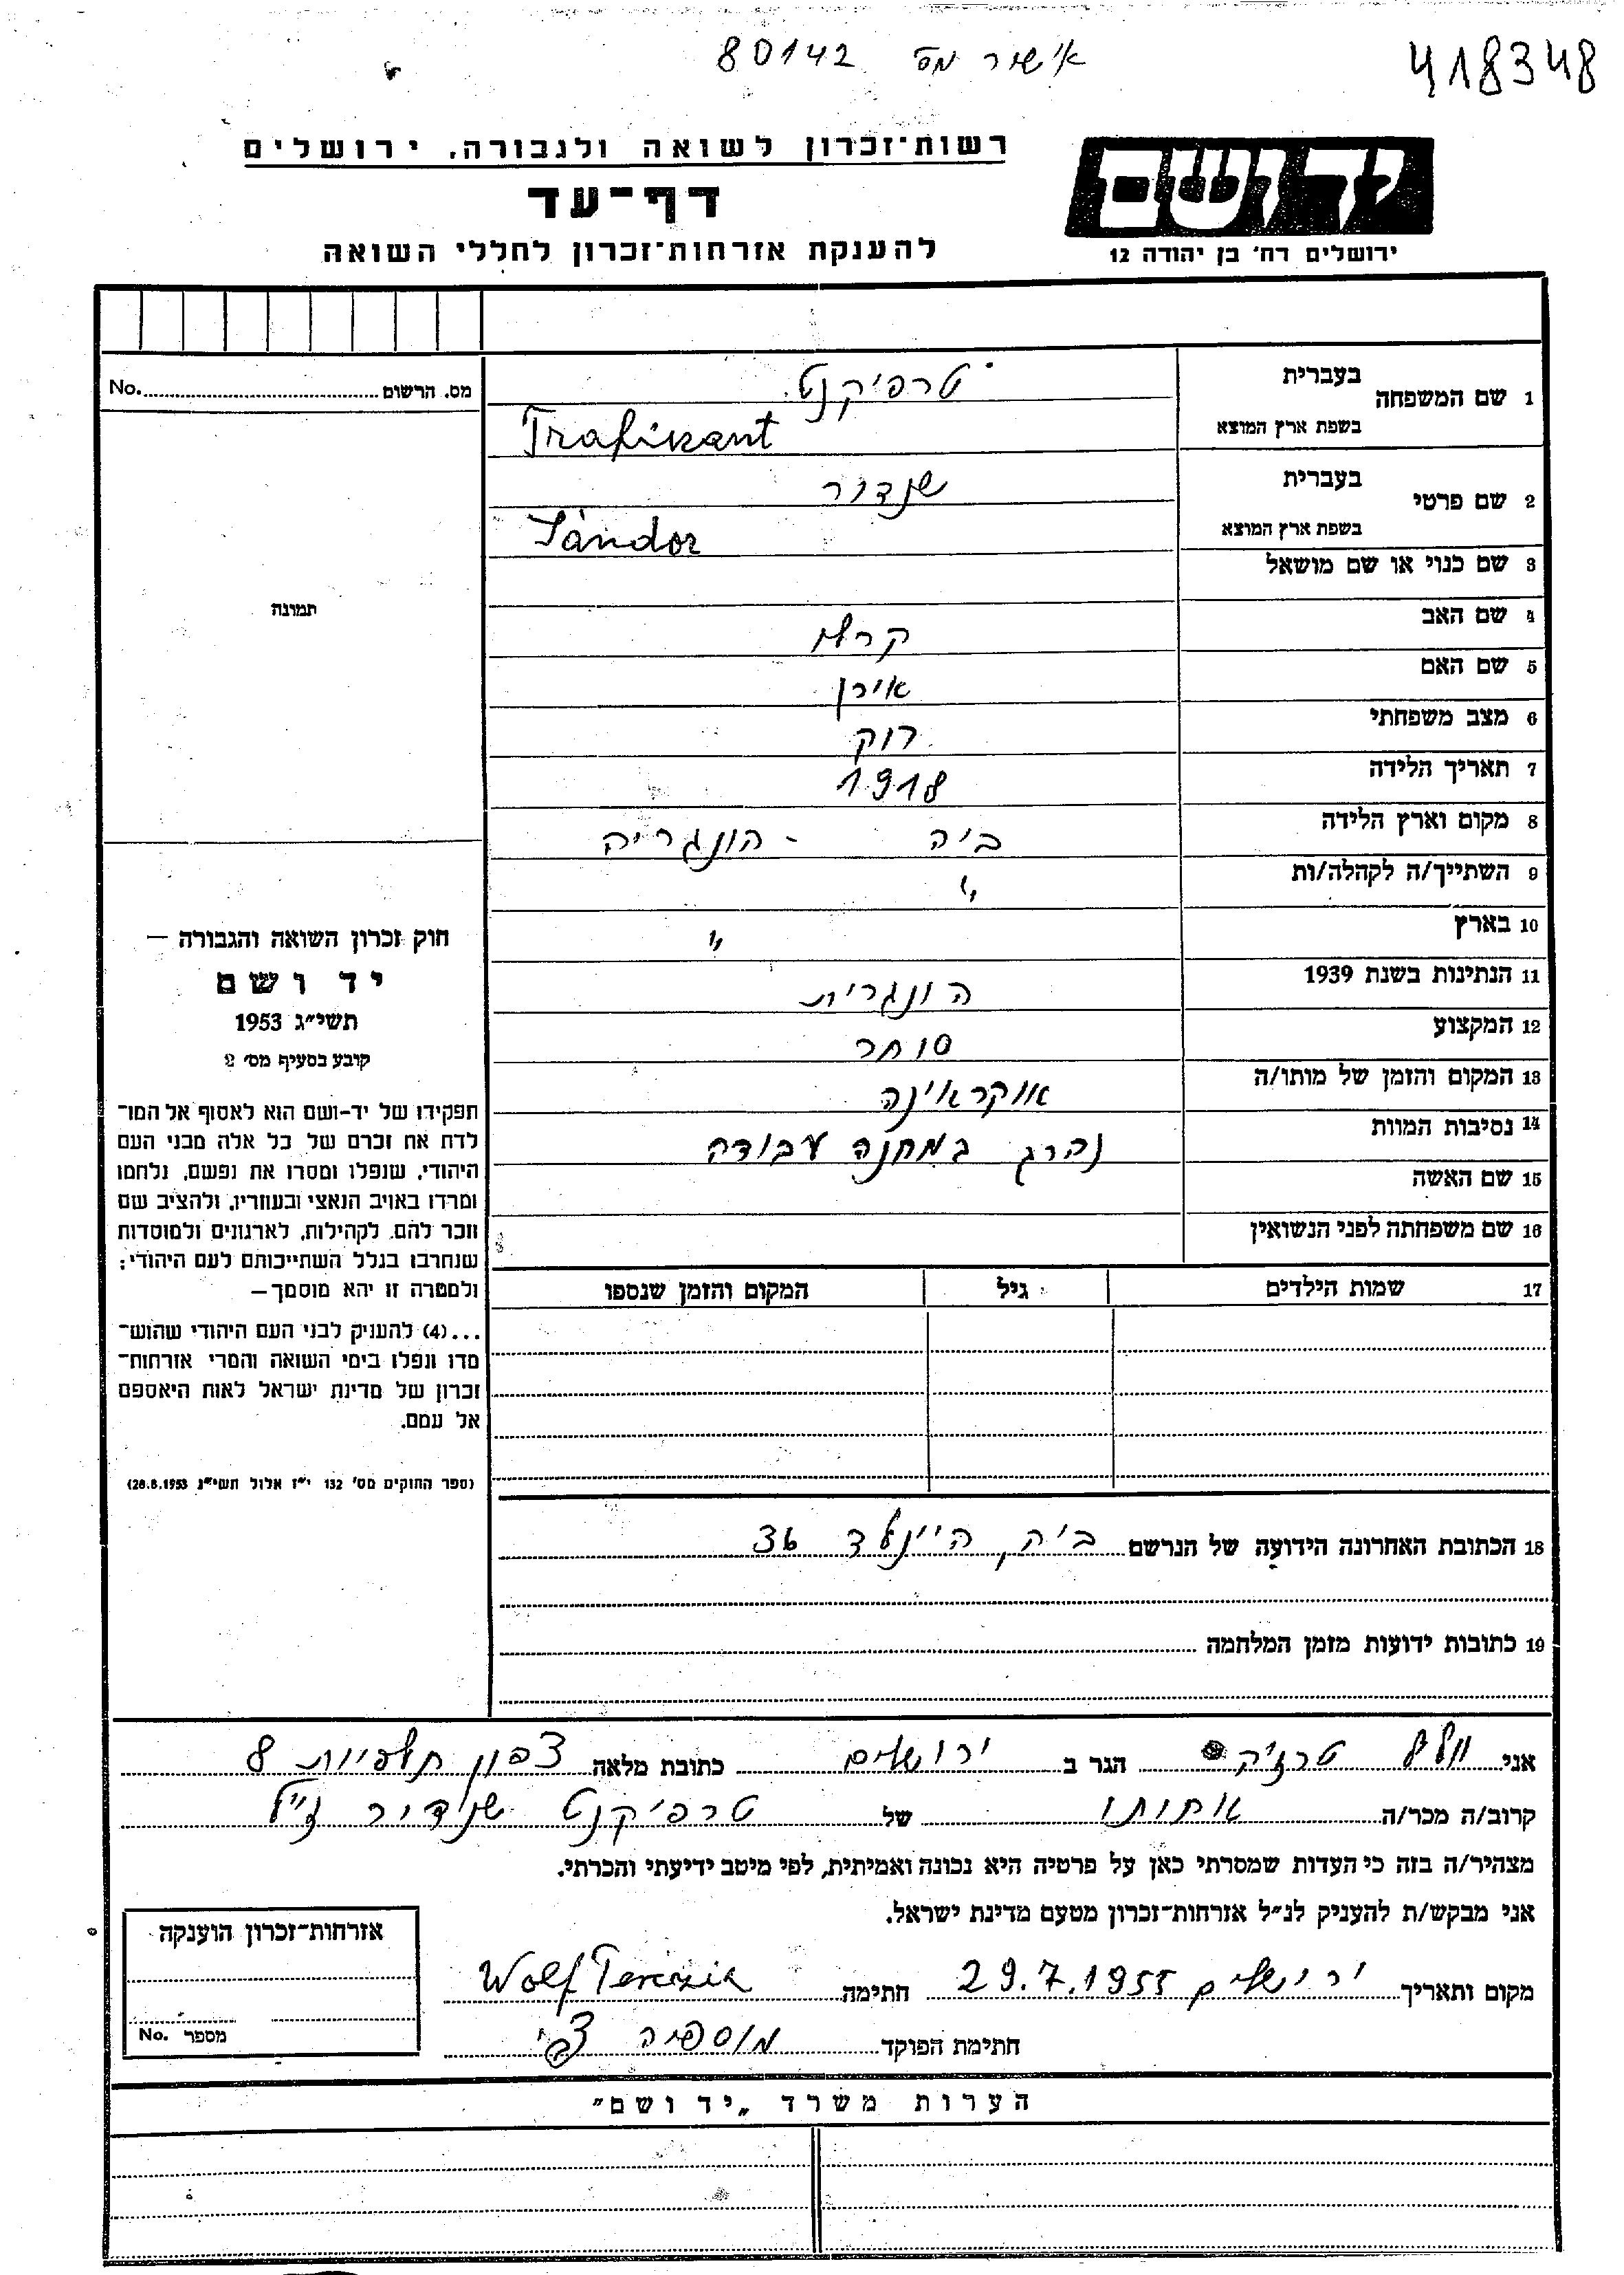 418348
אישור מס 80142
יד ושם
ירושלים רח׳ בן יהודה 12
רשות־זכרון לשואה ולגבורה, ירושלים
דף־עד
להענקת אזרחות־זכרון לחללי השואה
מס. הרשום No.
תמונה
1 שם המשפחה בעברית טרפיקנט
בשפת ארץ המוצא Trafikant
2 שם פרטי בעברית שנדור
בשפת ארץ המוצא Sándor
3 שם כנוי או שם מושאל
4 שם האב קרול
5 שם האם אירן
6 מצב משפחתי רוק
7 תאריך הלידה 1918
8 מקום וארץ הלידה ביה - הונגריה
9 השתייך/ה לקהלה/ות "
10 בארץ "
11 הנתינות בשנת 1939 הונגרית
12 המקצוע סוחר
13 המקום והזמן של מותו/ה אוקראינה
14 נסיבות המוות נהרג במחנה עבודה
15 שם האשה
16 שם משפחתה לפני הנשואין
17 שמות הילדים גיל המקום והזמן שנספו
חוק זכרון השואה והגבורה —
יד ושם
תשי״ג 1953
קובע בסעיף מס׳ 2
תפקידו של יד־ושם הוא לאסוף אל המו־
לדת את זכרם של כל אלה מבני העם
היהודי, שנפלו ומסרו את נפשם, נלחמו
ומרדו באויב הנאצי ובעוזריו, ולהציב שם
וזכר להם, לקהילות, לארגונים ולמוסדות
שנחרבו בגלל השתייכותם לעם היהודי;
ולמטרה זו יהא מוסמך —
...(4) להעניק לבני העם היהודי שהוש־
מדו ונפלו בימי השואה והמרי אזרחות־
זכרון של מדינת ישראל לאות היאספם
אל עמם.
(ספר החוקים מס׳ 132 י״ז אלול תשי״ג 28.8.1953)
18 הכתובת האחרונה הידועה של הנרשם 36
19 כתובות ידועות מזמן המלחמה
אני וולף הגר ב ירושלים כתובת מלאה צפון תלפיות 8
קרוב/ה מכר/ה אחותו של טרפיקנט שנדור ז״ל
מצהיר/ה בזה כי העדות שמסרתי כאן על פרטיה היא נכונה ואמיתית, לפי מיטב ידיעתי והכרתי.
אני מבקש/ת להעניק לנ״ל אזרחות־זכרון מטעם מדינת ישראל.
מקום ותאריך ירושלים 29.7.1955 חתימה Wolf Terezia
חתימת הפוקד מוספיה צבי
אזרחות־זכרון הוענקה
מספר No.
הערות משרד „יד ושם״